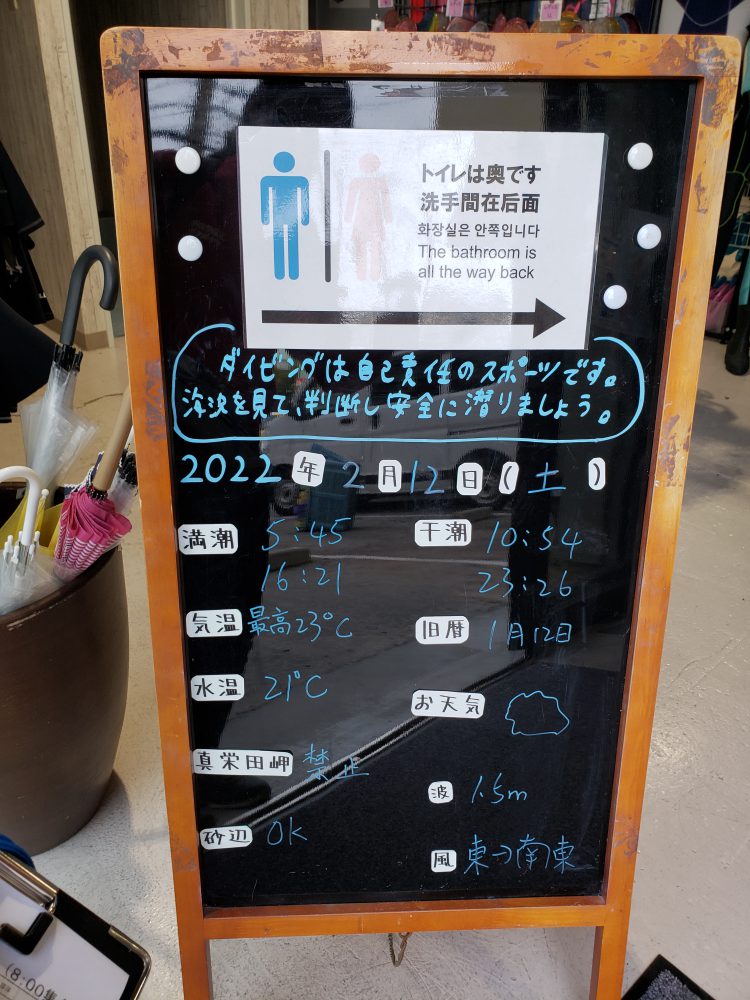 トイレは奥です
洗手間在后面
화장실은 안쪽입니다
The bathroom is
all the way back
ダイビングは自己責任のスポーツです。
海況を見て、判断し安全に潜りましょう。
2022年2月12日(土)
満潮 5:45 干潮 10:54
16:21 23:26
気温 最高23℃ 旧暦 1月12日
水温 21℃ お天気
真栄田岬 禁止 波 1.5m
砂辺 OK 風 東→南東
(8:00集